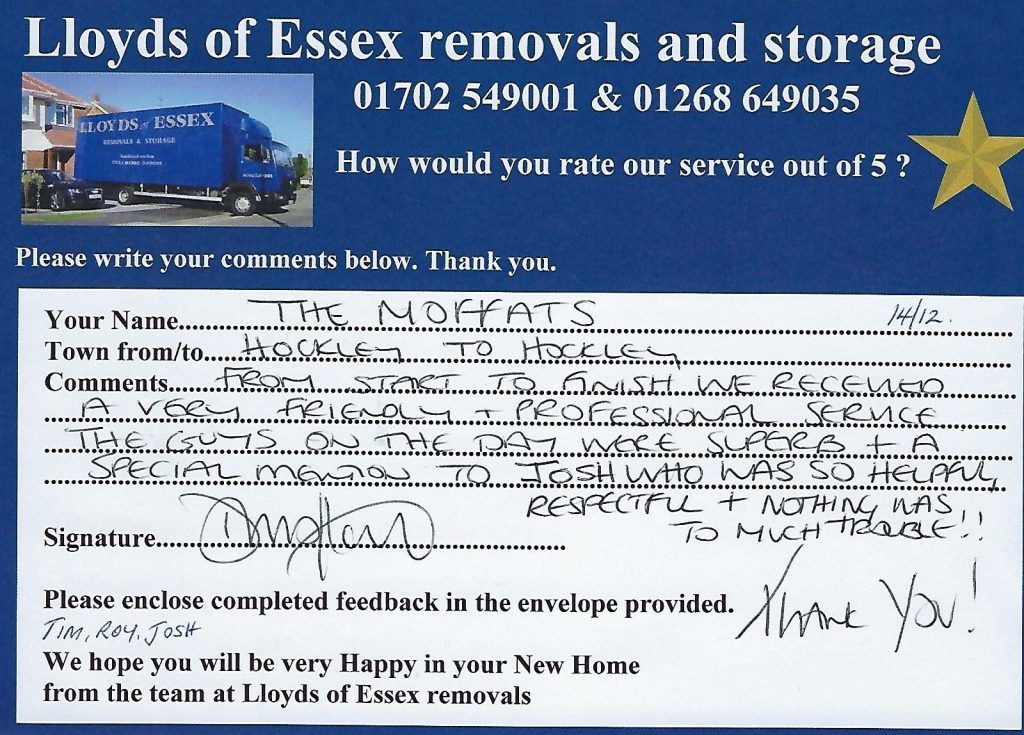 Lloyds of Essex removals and storage
01702 549001 & 01268 649035
LLOYDS of ESSEX
REMOVALS & STORAGE
How would you rate our service out of 5 ?
Please write your comments below. Thank you.
Your Name THE MOFFATS 14/12.
Town from/to HOCKLEY TO HOCKLEY
Comments FROM START TO FINISH WE RECEIVED
A VERY FRIENDLY + PROFESSIONAL SERVICE
THE GUYS ON THE DAY WERE SUPERB + A
SPECIAL MENTION TO JOSH WHO WAS SO HELPFUL,
RESPECTFUL + NOTHING WAS
TO MUCH TROUBLE!!
Signature
Please enclose completed feedback in the envelope provided.
THANK YOU!
TIM, ROY, JOSH
We hope you will be very Happy in your New Home
from the team at Lloyds of Essex removals